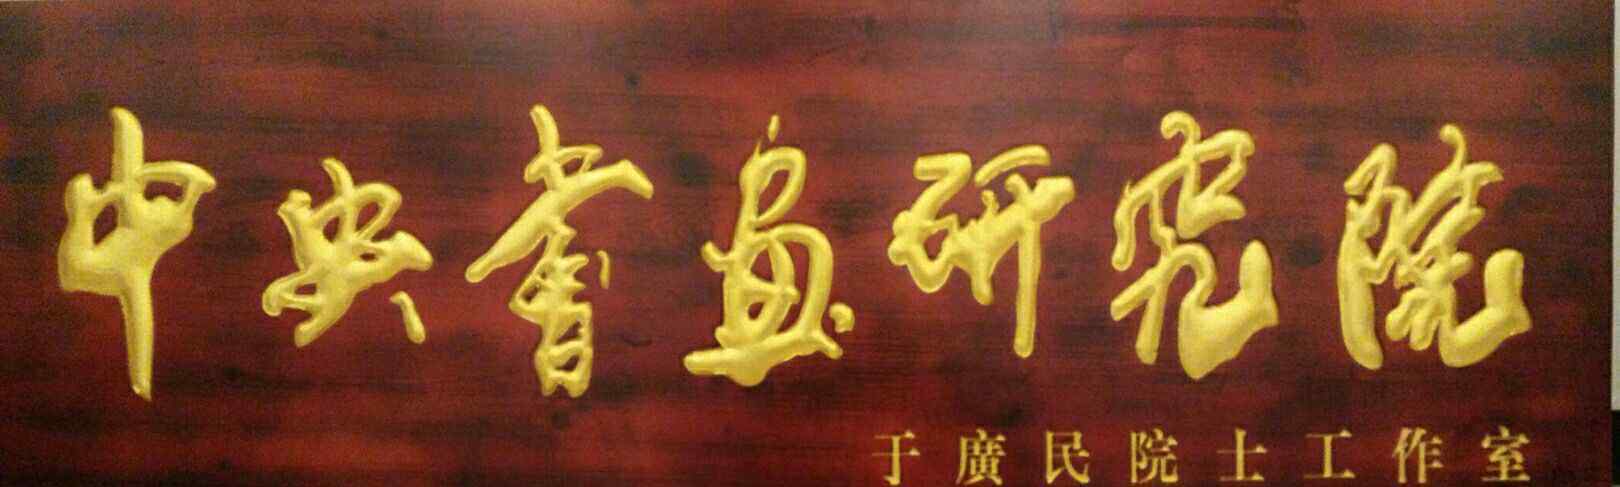 中央書畫研究院
于廣民院士工作室